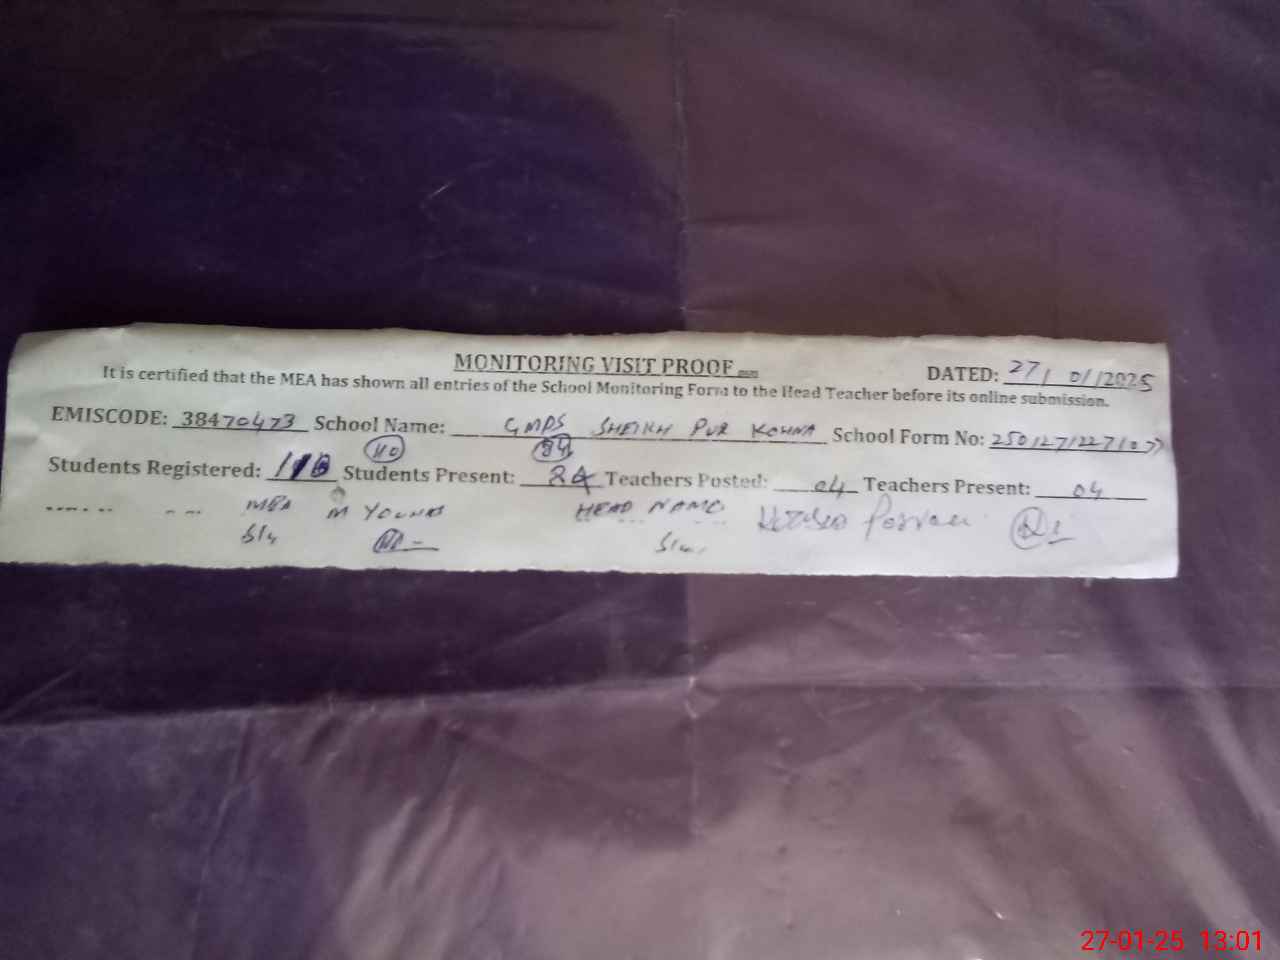 MONITORING VISIT PROOF DATED: 27/01/2025
It is certified that the MEA has shown all entries of the School Monitoring Form to the Head Teacher before its online submission.
EMISCODE: 38470473 School Name: GMPS SHEIKH PUR KOHNA School Form No:
110 84
Students Registered: Students Present: 84 Teachers Posted: 04 Teachers Present: 04
MEA M YOUNAS HEAD NAME
27-01-25 13:01